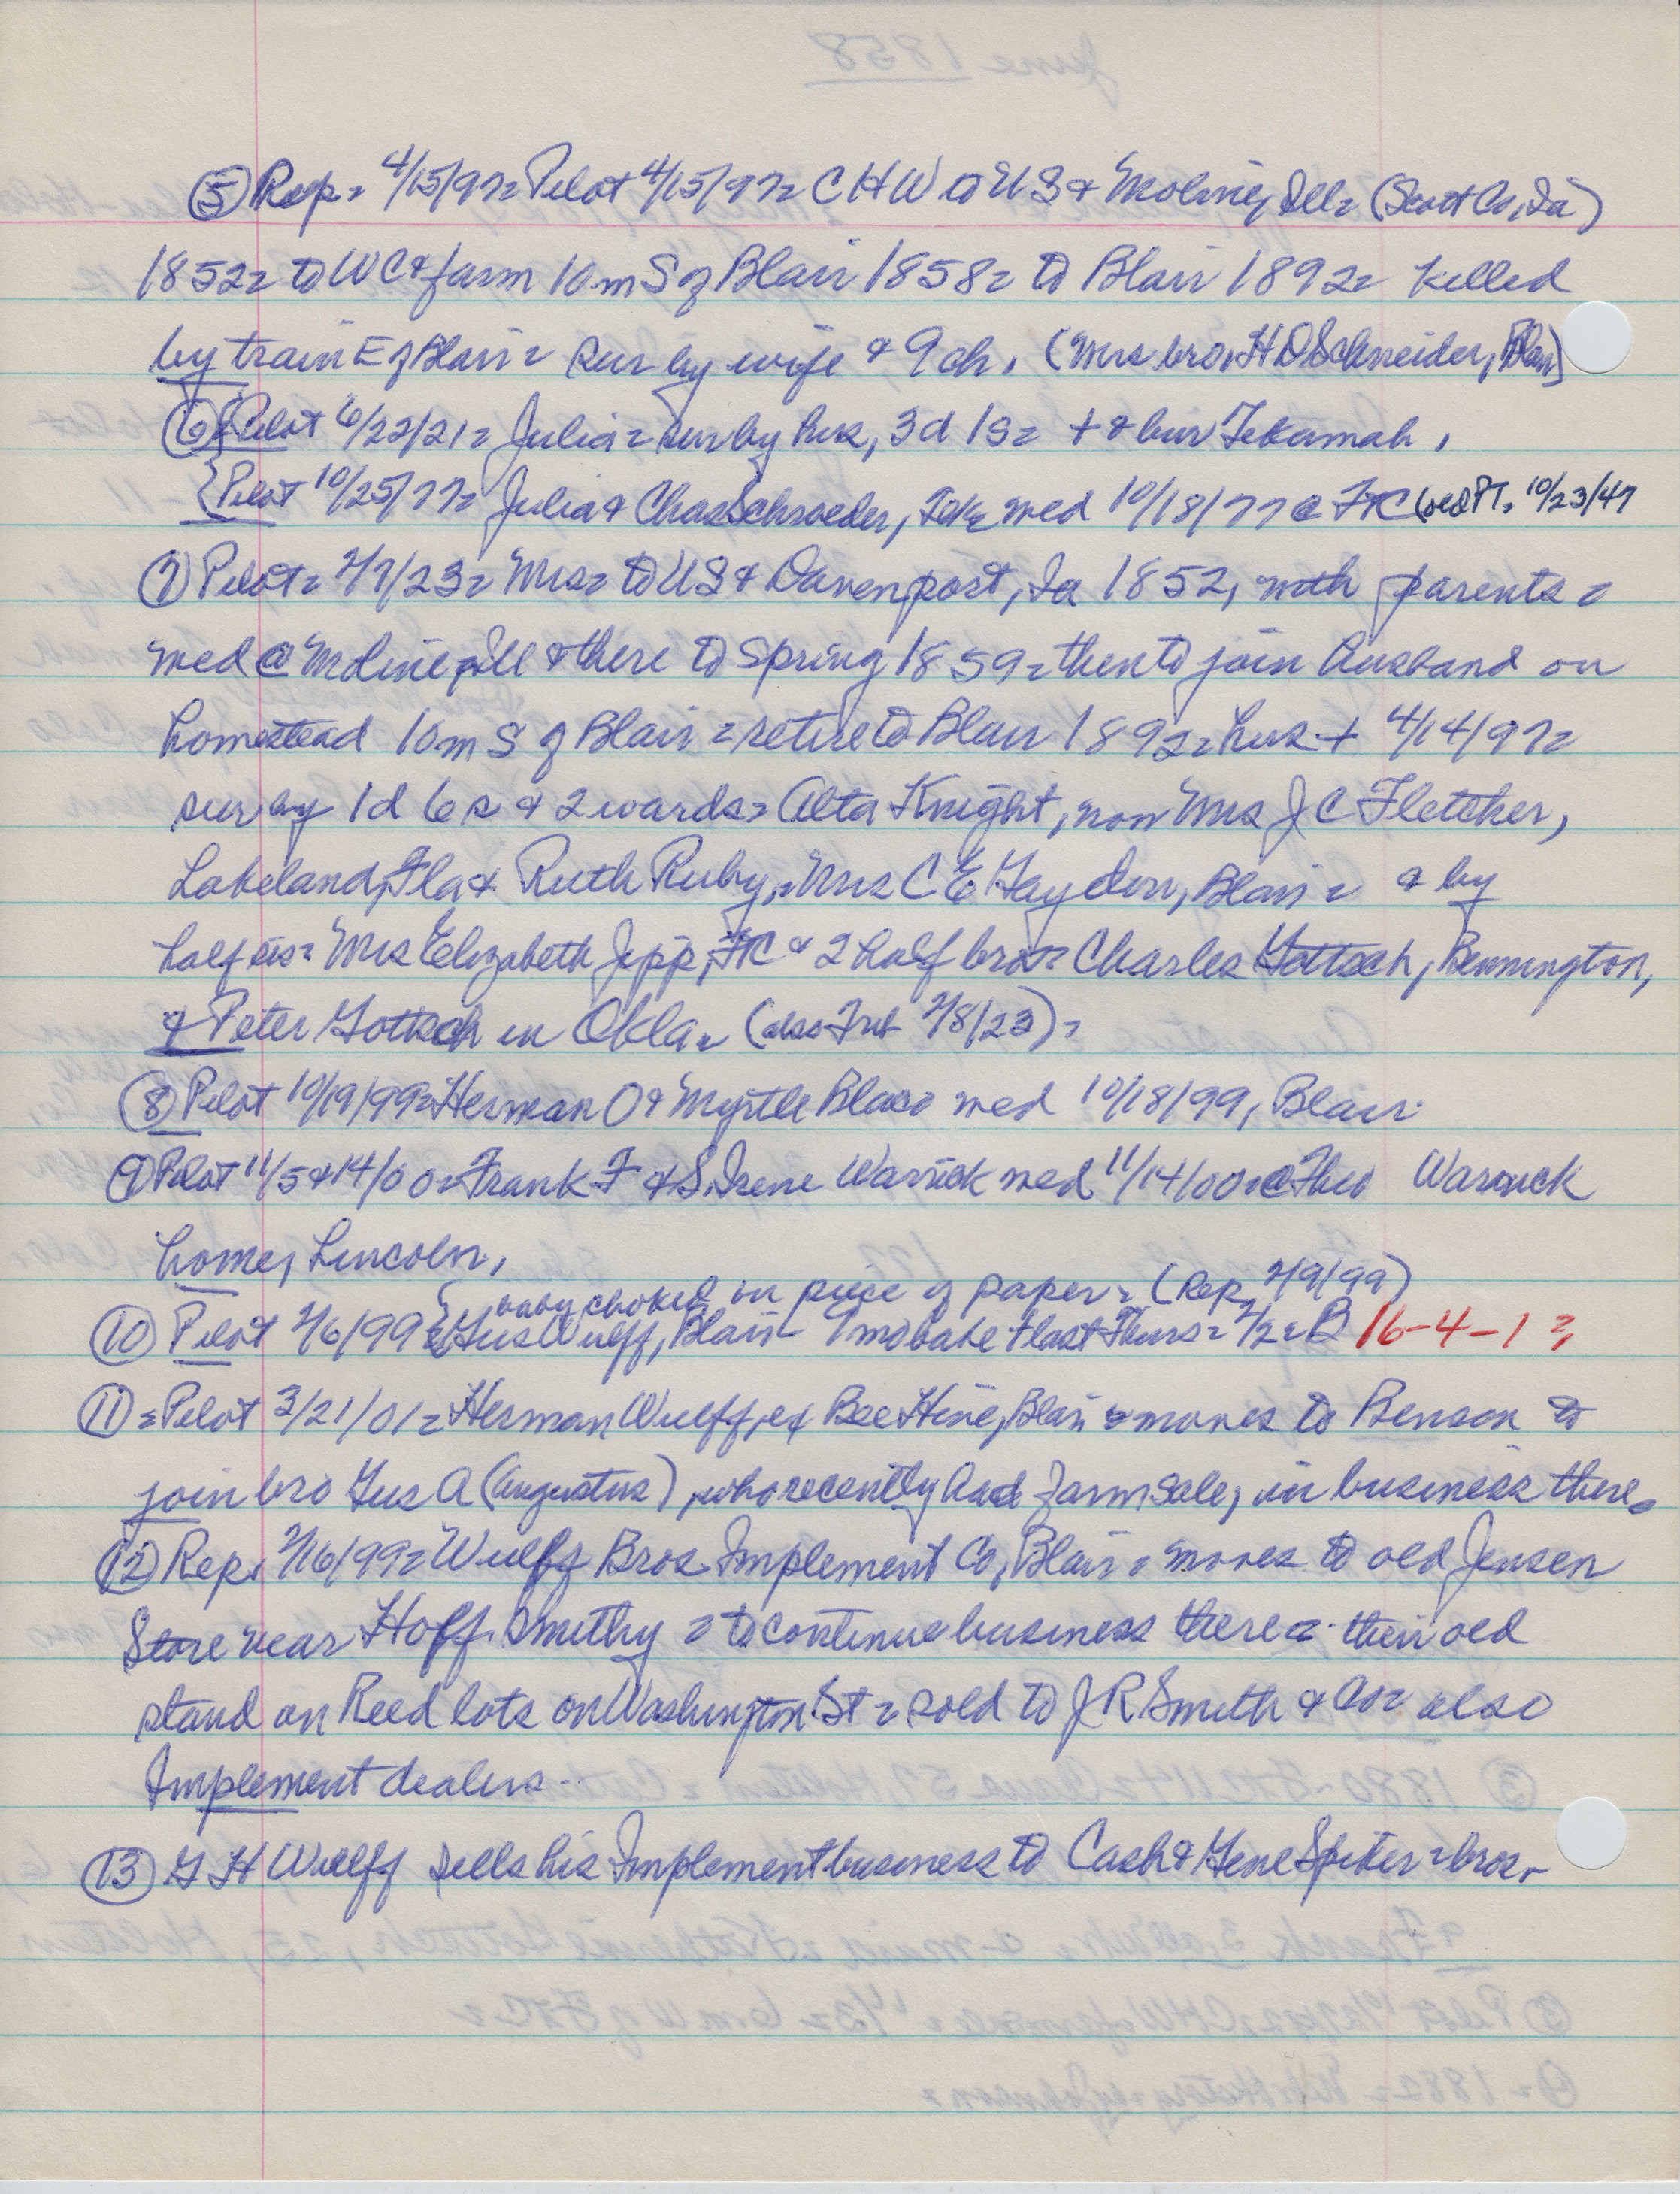 ⑤ Rep = 4/15/97 = Pilot 4/15/97 = C H W to US & Moline, Ill = (Scott Co, Ia)
1852 = to WC & farm 10 m S of Blair 1858 = to Blair 1892 = killed
by train E of Blair = sur by wife & 9 ch. (Mrs bro, H D Schneider, Blair)
⑥ {Pilot 6/22/21 = Julia = sur by hus, 3 d 1 s = + & bur Tekamah,
{Pilot 10/25/77 = Julia & Chas Schroeder, Tek = med 10/18/77 @ FTC 10/23/47
⑦ Pilot = 2/7/23 = Mrs = to US & Davenport, Ia 1852, with parents =
med @ Moline, Ill & there to Spring 1859 = then to join husband on
homestead 10 m S of Blair = retire to Blair 1892 = hus + 4/14/97 =
sur by 1 d 6 s & 2 wards = Alta Knight, now Mrs J C Fletcher,
Lakeland, Fla & Ruth Ruby, = Mrs C E Haydon, Blair = & by
half sis = Mrs Elizabeth Jipp, FTC & 2 half bro = Charles Gottsch, Bennington,
& Peter Gottsch in Okla = (also Trib 2/8/23) =
⑧ Pilot 10/19/99 = Herman O & Myrtle Blaco med 10/18/99, Blair.
⑨ Pilot 11/5 & 14/00 = Frank F & S. Irene Warrick med 11/14/00 = @ Theo Warrick
home, Lincoln,
{baby choked on piece of paper = (Rep, 2/9/99)
⑩ Pilot 2/6/99 {Gus Wulff, Blair - 9 mo babe + last Thurs = 2/2 = B 16-4-1 ?,
⑪ = Pilot 3/21/01 = Herman Wulff, of Bee Hive, Blair = moves to Benson to
join bro Gus A (Augustus), who recently had farm sale, in business there.
⑫ Rep, 2/16/99 = Wulff Bros Implement Co, Blair = moves to old Jensen
Store near Hoff Smithy = to continue business there = their old
stand on Reed lots on Washington St = sold to J R Smith & Co = also
Implement dealers..
⑬ G H Wulff sells his Implement business to Cash & Gene Spiker = bros.